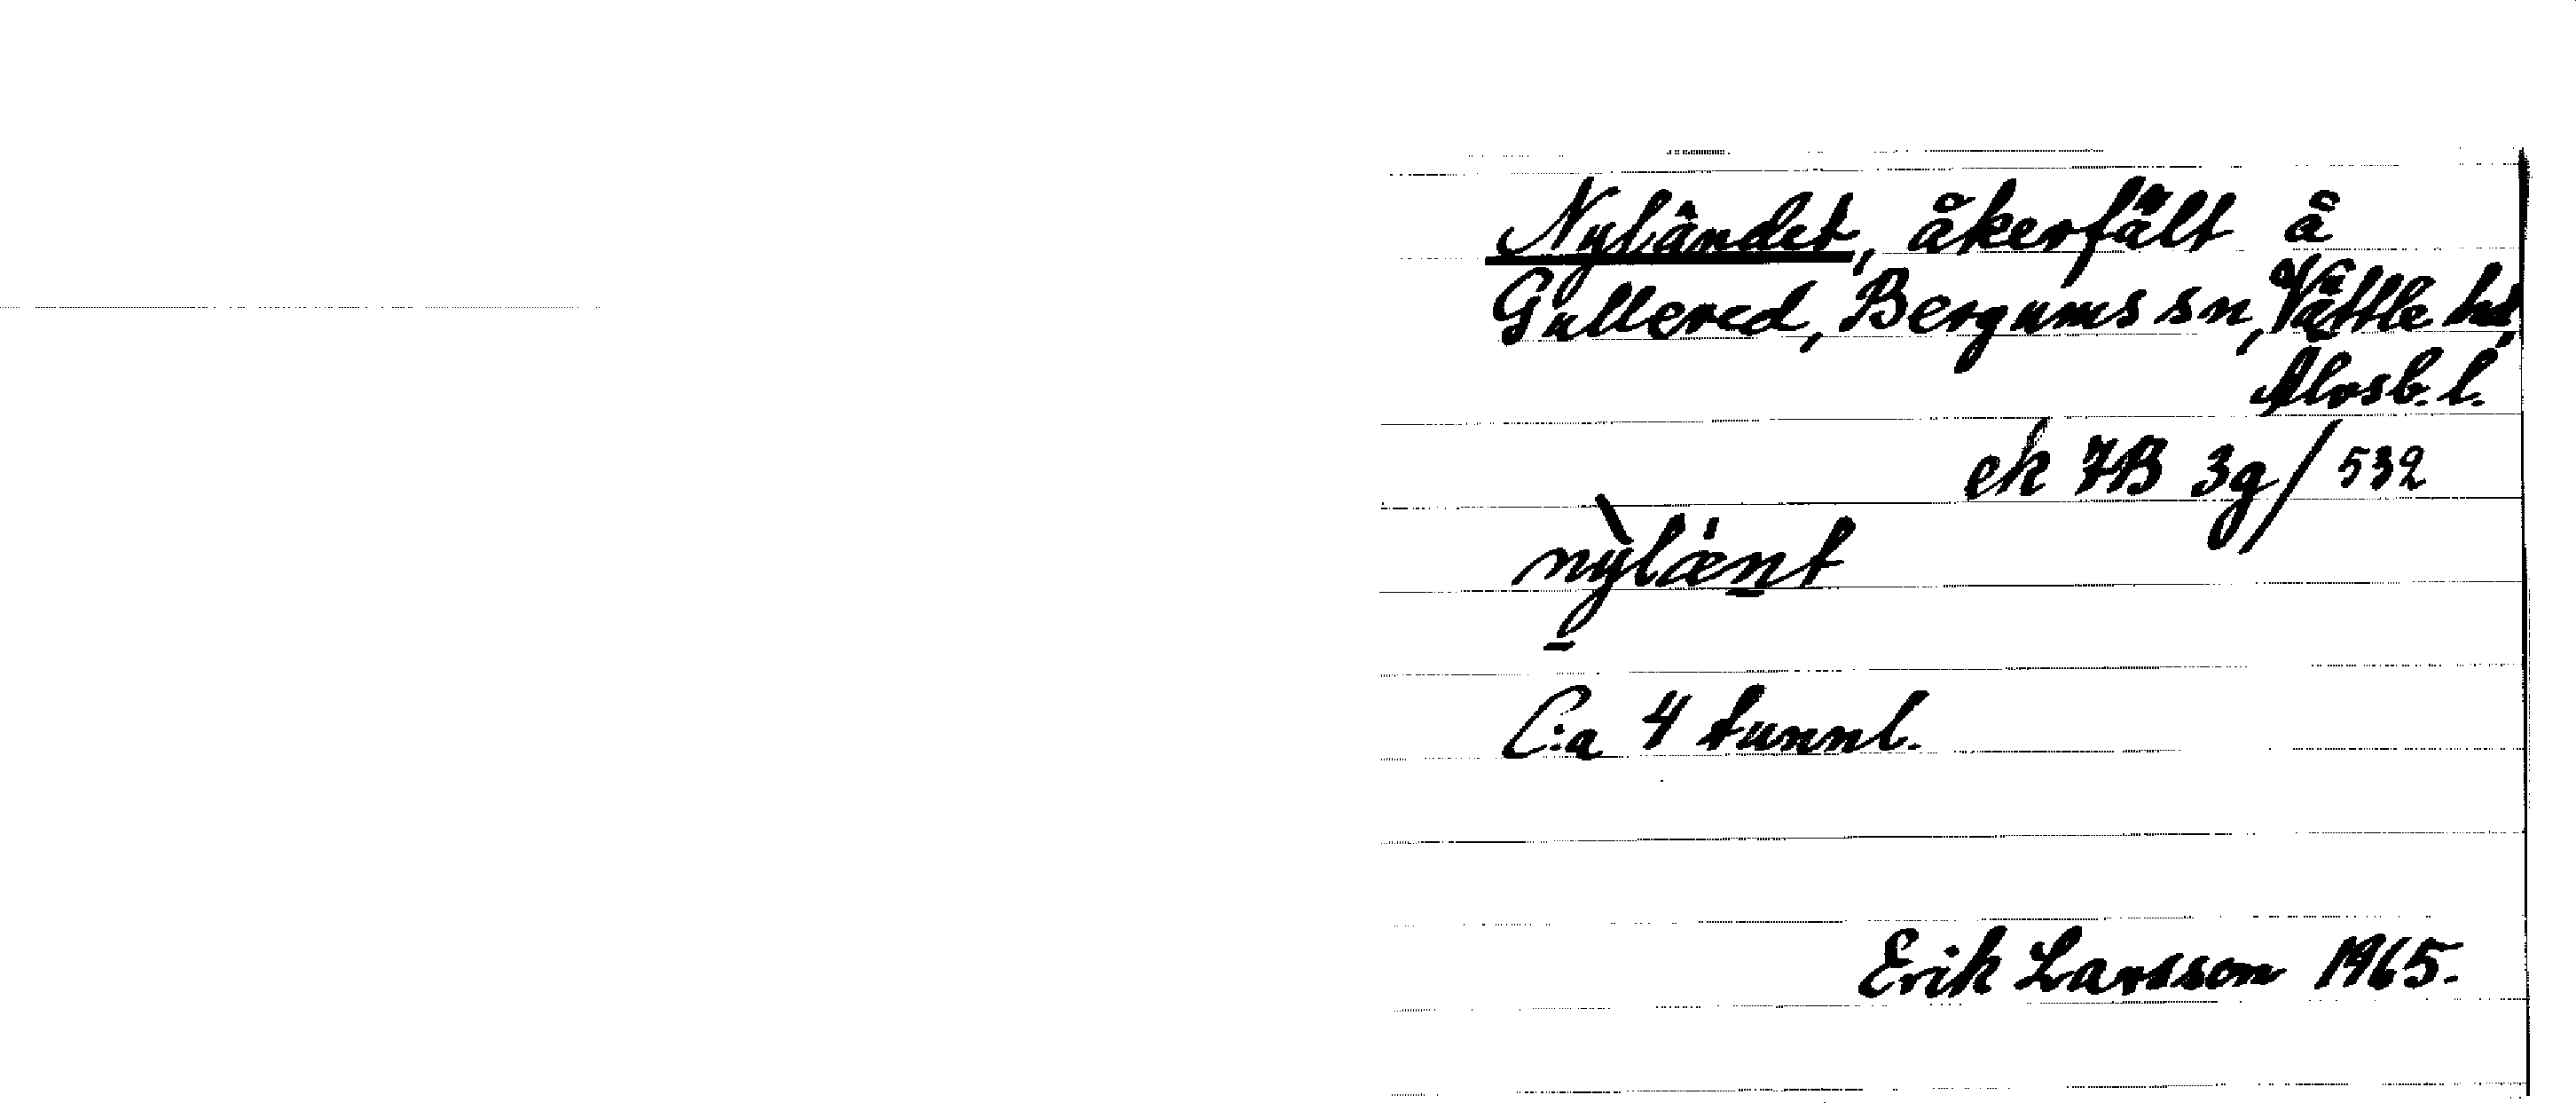 Nyländet, åkerfält å
Gullered, Bergums sn, Vättle hd,
Älvsb. l.
ek 7B 3g/532
nỳlænt
C:a 4 tunnl.
Erik Larsson 1965.